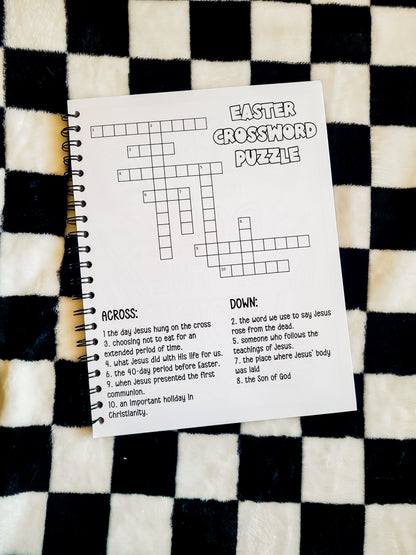 EASTER
CROSSWORD
PUZZLE
ACROSS:
1 the day Jesus hung on the cross
3. choosing not to eat for an
extended period of time.
4. what Jesus did with His life for us.
6. the 40-day period before Easter.
9. when Jesus presented the first
communion.
10. an important holiday in
Christianity.
DOWN:
2. the word we use to say Jesus
rose from the dead.
5. someone who follows the
teachings of Jesus.
7. the place where Jesus' body
was laid
8. the Son of God